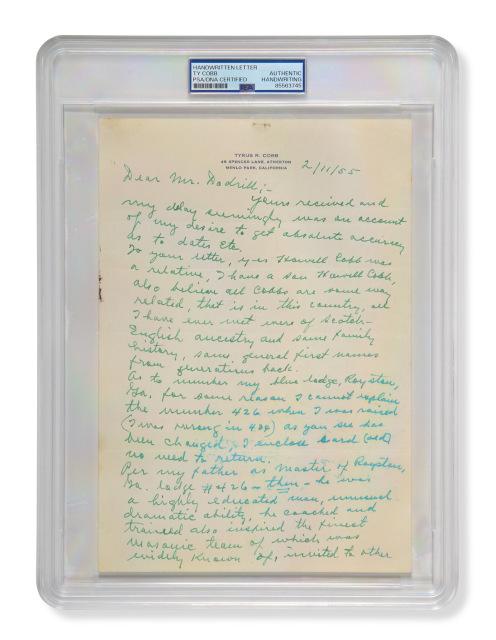 HANDWRITTEN LETTER
TY COBB
PSA/DNA CERTIFIED
AUTHENTIC
HANDWRITING
85563745
TYRUS R. COBB
48 SPENCER LANE, ATHERTON
MENLO PARK, CALIFORNIA
2/11/55
Dear Mr. Dodrill;-
Yours received and
my delay seemingly was on account
of my desire to get absolute accuracy
as to dates etc.
To your letter, yes Howell Cobb was
a relative, I have a son Howell Cobb,
also believe all Cobbs are some way
related, that is in this country, all
I have ever met were of Scotch-
English ancestry and same family
history, same general first names
from generations back.
As to number my blue lodge, Royston,
Ga. for some reason I cannot explain
the number 426 when I was raised
(I was wrong in 434) as you see has
been changed, I enclose card
no need to return.
Per my father as master of Royston,
Ga. lodge #426 - then - he was
a highly educated man, unusual
dramatic ability, he coached and
trained also inspired the finest
Masonic team of which was
widely known of, invited to other